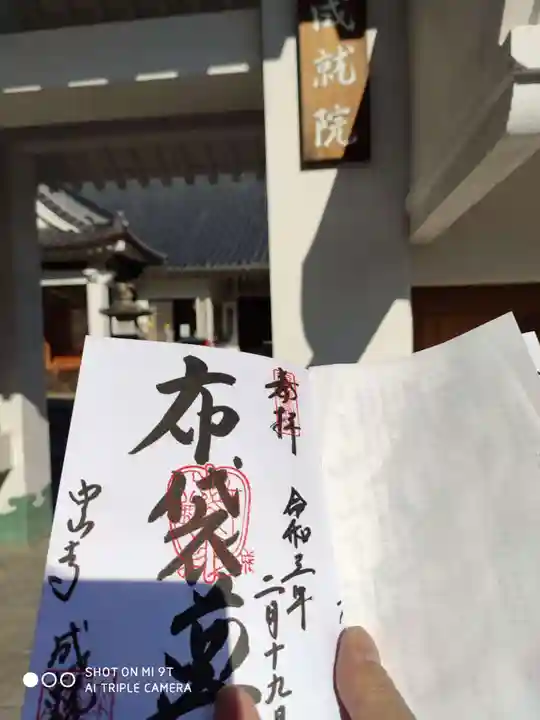 成就院
奉拝
令和三年
二月十九日
布袋尊
中山寺 成就
SHOT ON MI 9T
AI TRIPLE CAMERA